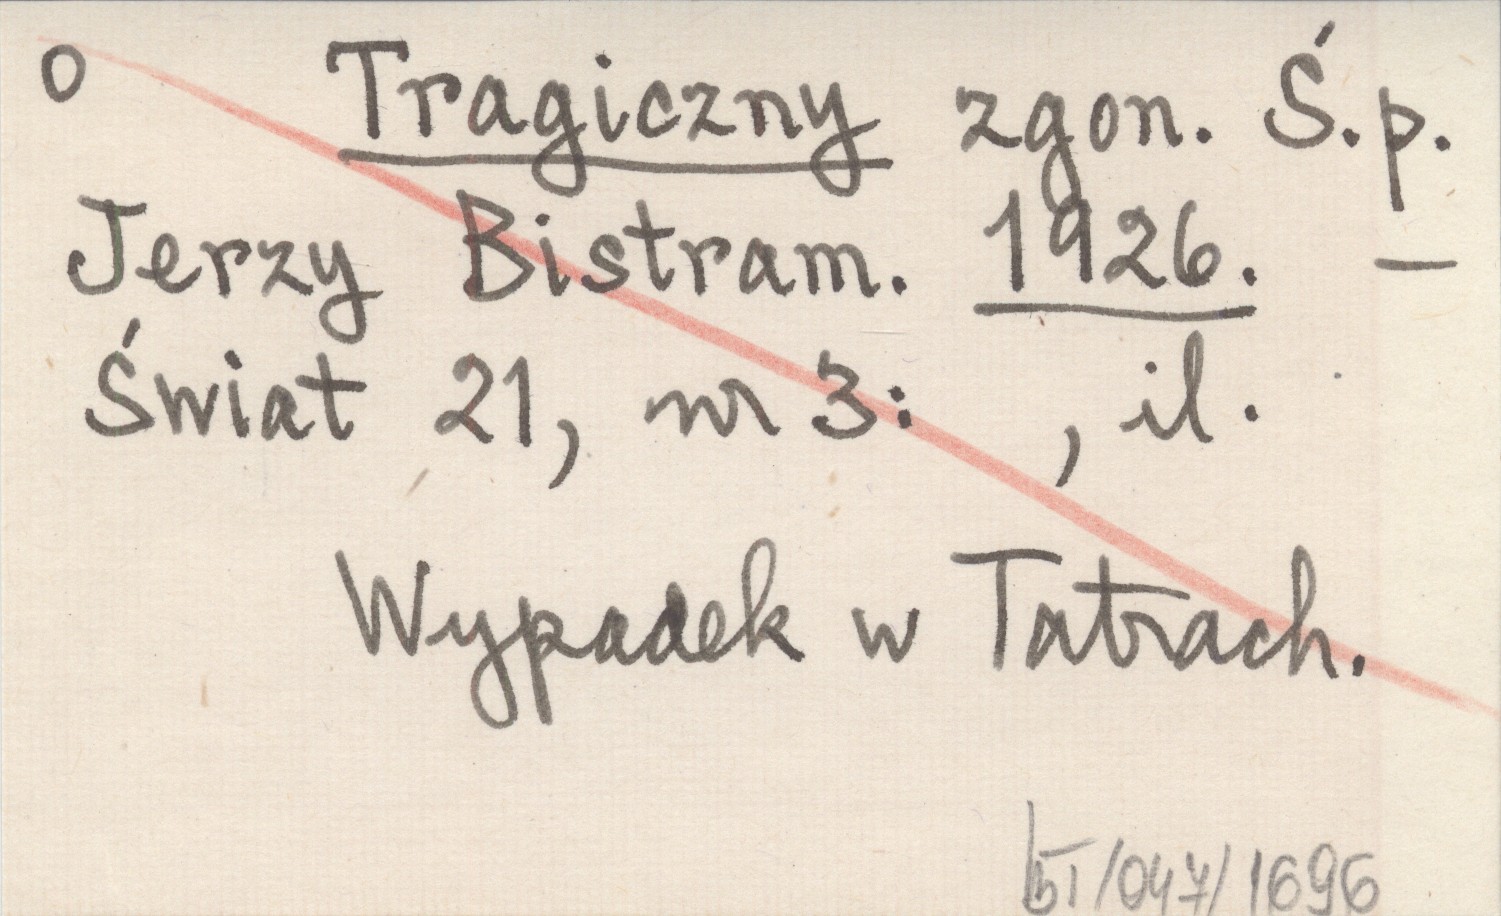 o Tragiczny zgon. Ś.p.
Jerzy Bistram. 1926. —
Świat 21, nr 3: , il.
Wypadek w Tatrach.
/047/1696